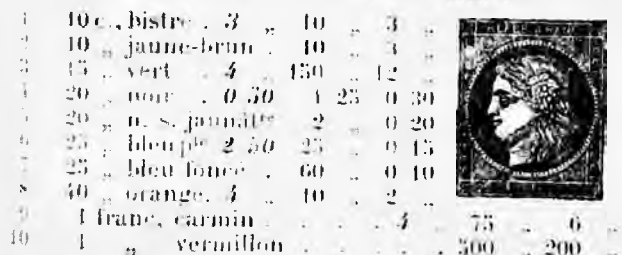 1 10 c., bistre . 3 „ 10 „ 3 „
2 10 „ jaune-brun . 10 „ 3 „
3 15 „ vert . 4 „ 150 „ 12 „
4 20 „ noir . 0 50 1 25 0 30
5 20 „ n. s. jaunâtre 2 „ 0 20
6 25 „ bleu ple 2 50 25 „ 0 15
7 25 „ bleu foncé . 60 „ 0 10
8 40 „ orange. 4 „ 10 „ 2 „
9 1 franc, carmin . . . 4 . 75 „ 6 „
10 1 „ vermillon . . . . 500 „ 200 „